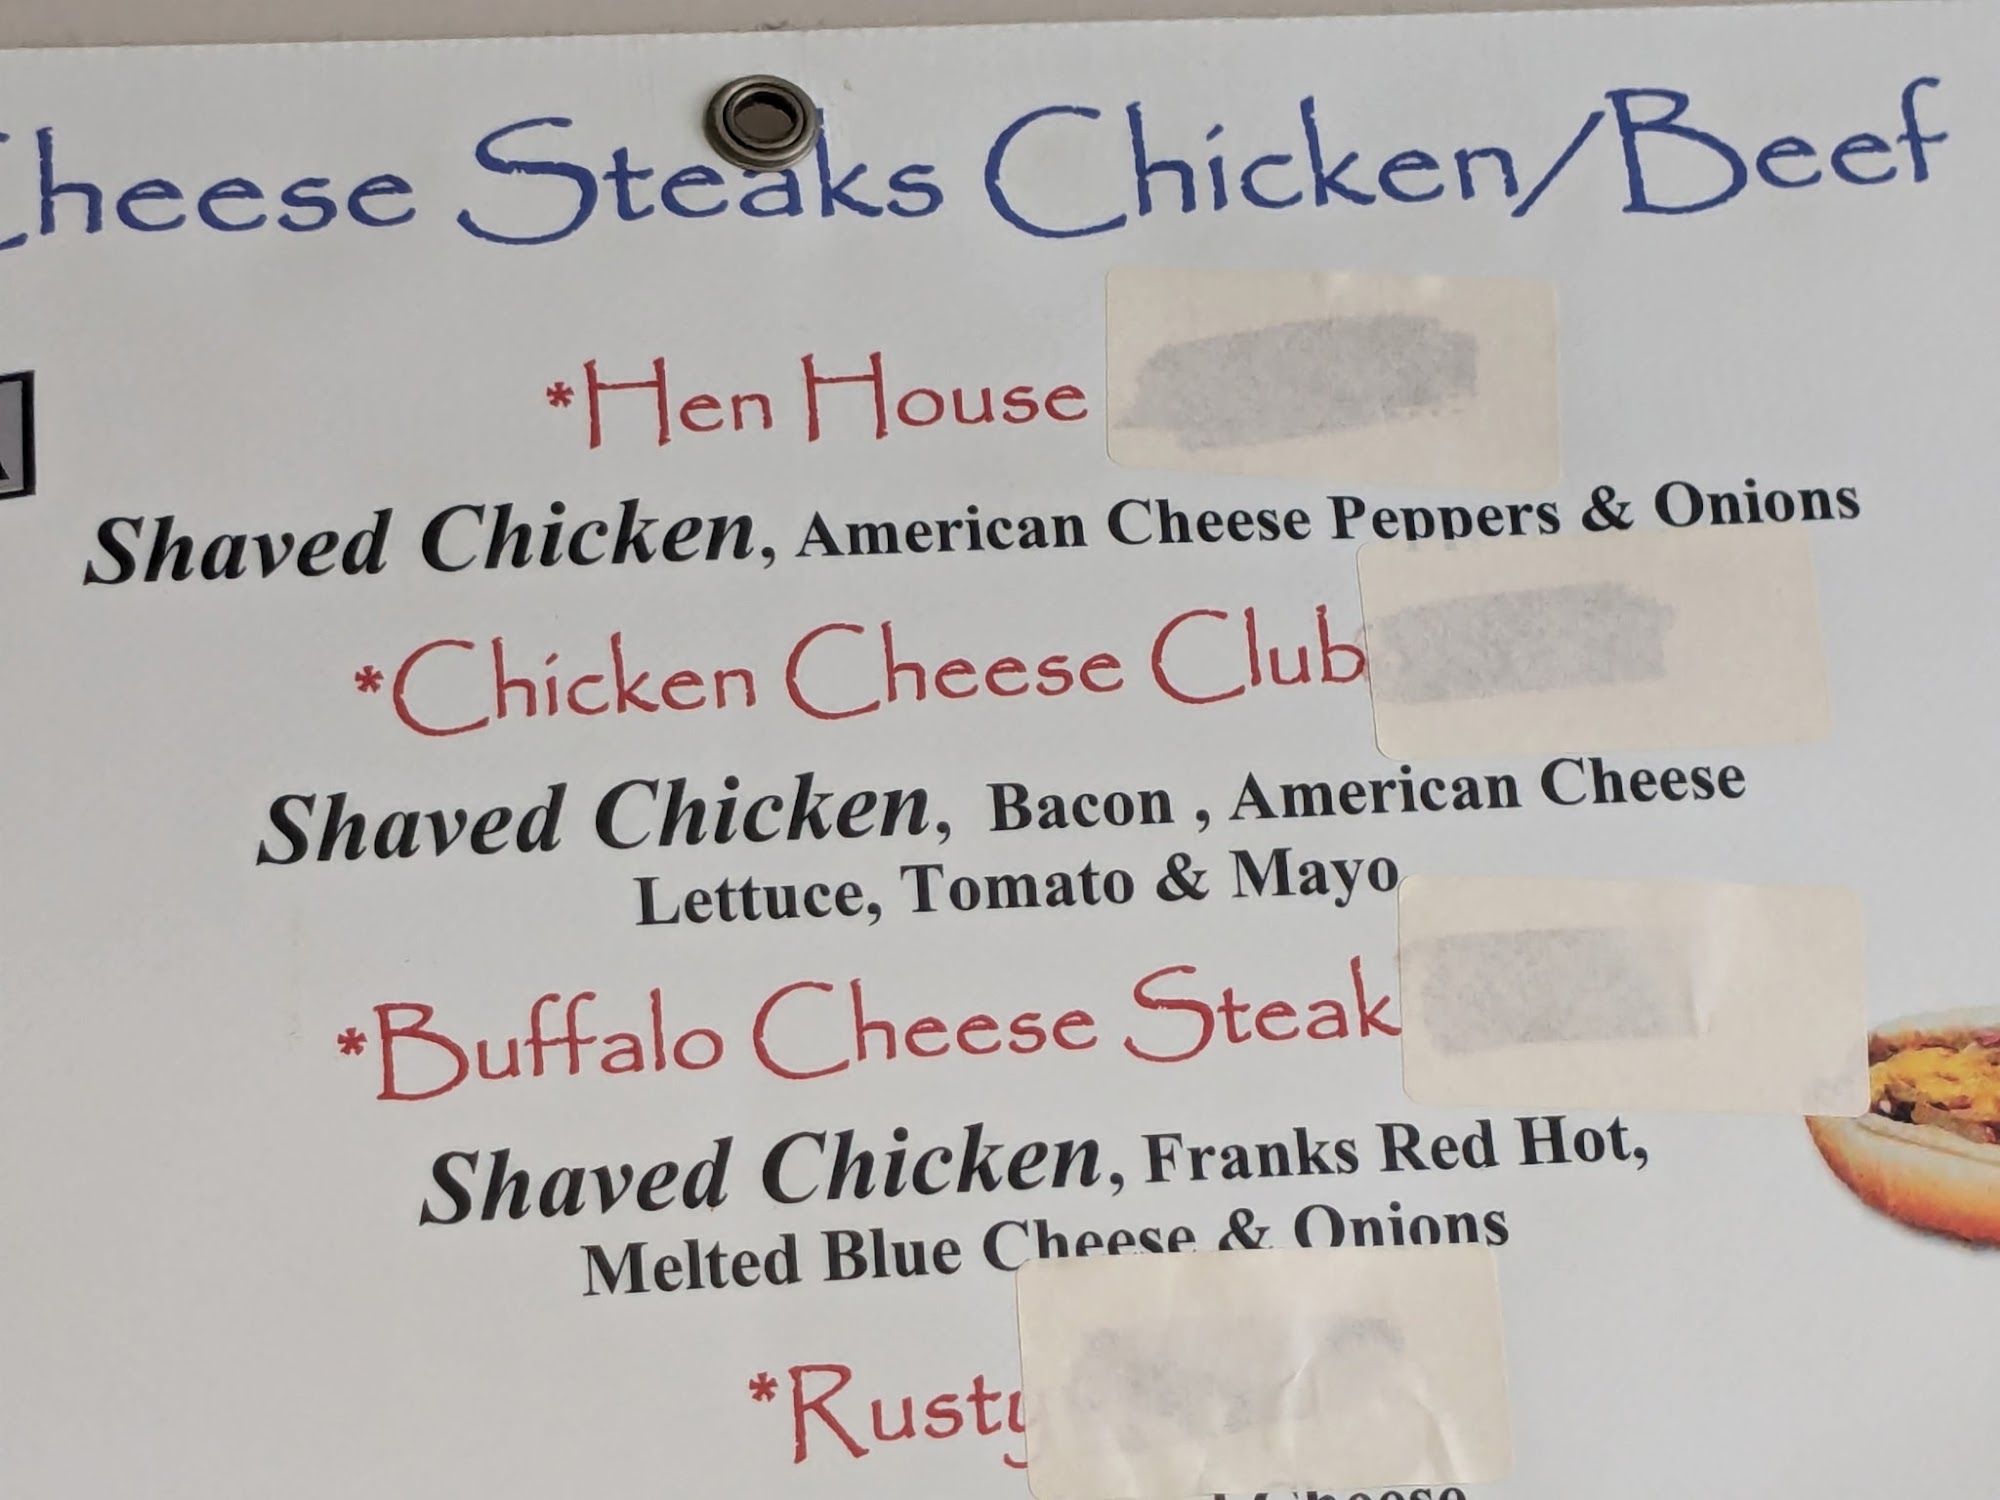 Cheese Steaks Chicken/Beef
*Hen House
Shaved Chicken, American Cheese Peppers & Onions
*Chicken Cheese Club
Shaved Chicken, Bacon , American Cheese
Lettuce, Tomato & Mayo
*Buffalo Cheese Steak
Shaved Chicken, Franks Red Hot,
Melted Blue Cheese & Onions
*Rusty
Cheese